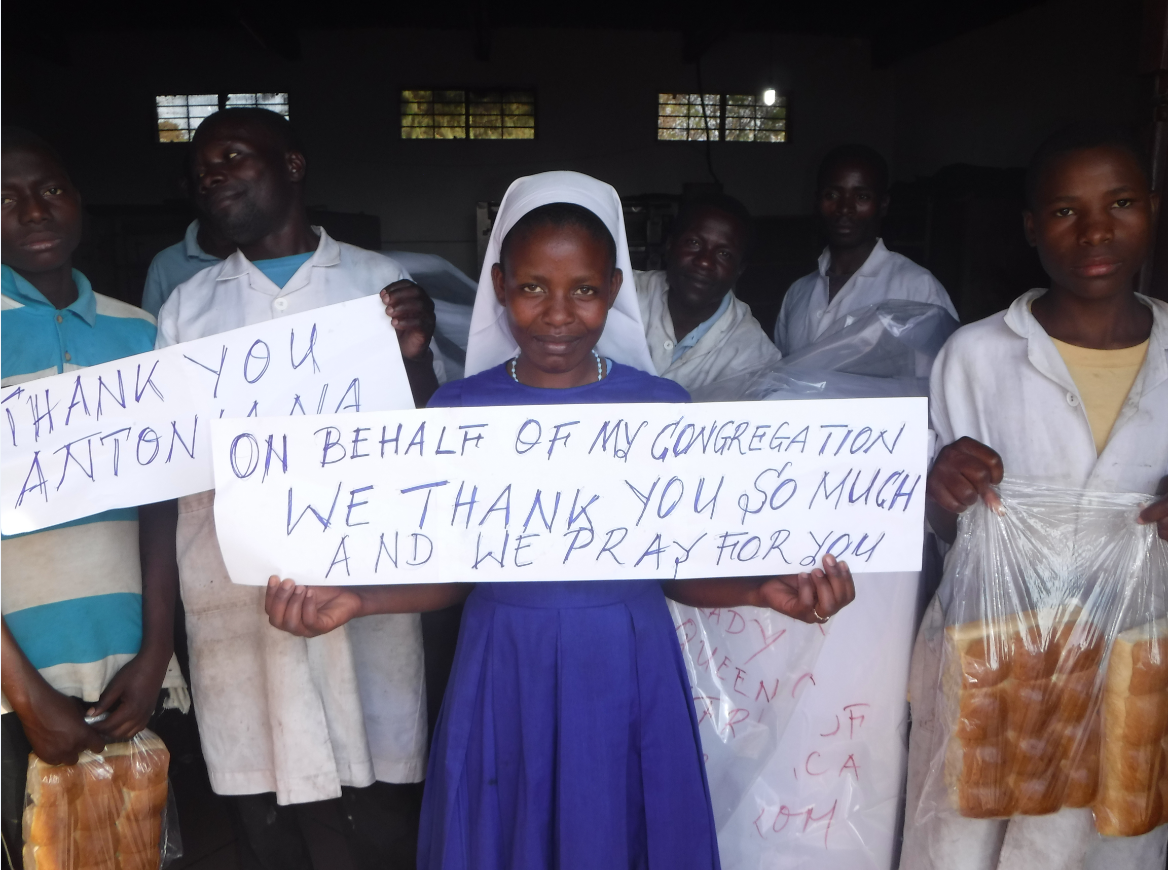 THANK YOU
ANTONIANA
ON BEHALF OF MY CONGREGATION
WE THANK YOU SO MUCH
AND WE PRAY FOR YOU
LADY
QUEEN